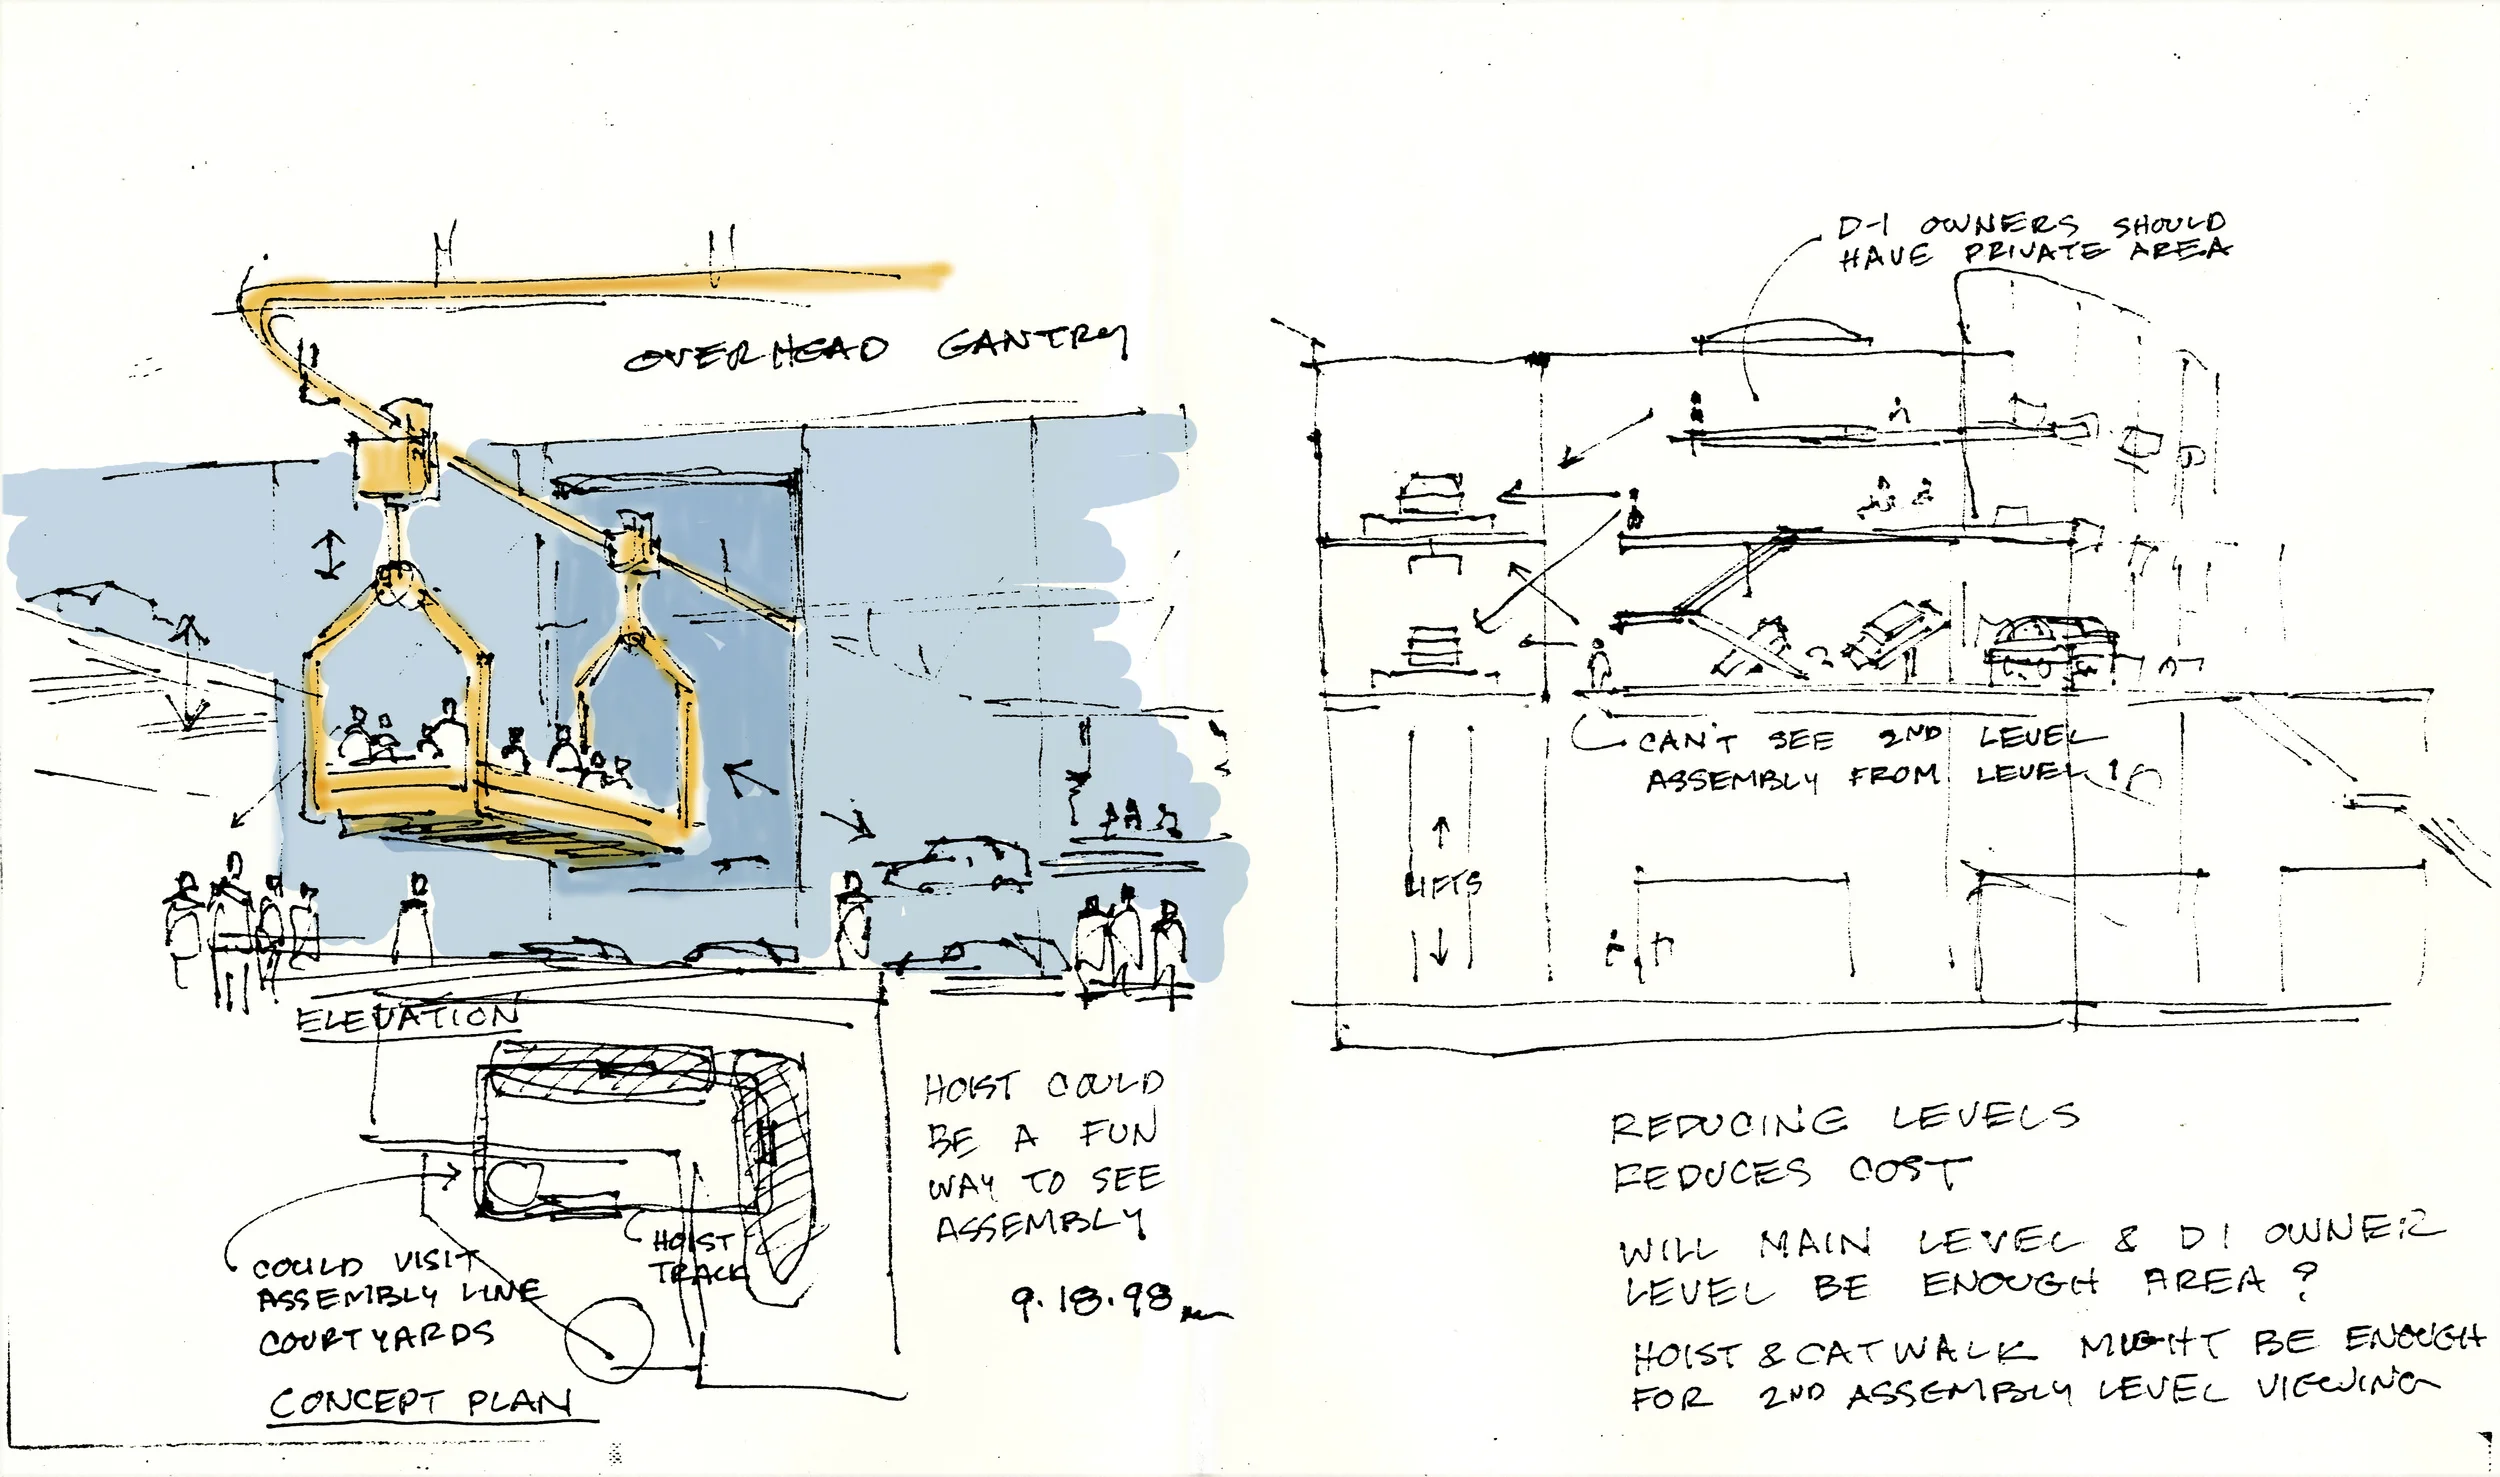 OVERHEAD GANTRY
ELEVATION
HOIST COULD
BE A FUN
WAY TO SEE
ASSEMBLY
9.18.98
HOIST
TRACK
COULD VISIT
ASSEMBLY LINE
COURTYARDS
CONCEPT PLAN
D-1 OWNERS SHOULD
HAVE PRIVATE AREA
CAN'T SEE 2ND LEVEL
ASSEMBLY FROM LEVEL 1
LIFTS
REDUCING LEVELS
REDUCES COST
WILL MAIN LEVEL & D1 OWNER
LEVEL BE ENOUGH AREA?
HOIST & CATWALK MIGHT BE ENOUGH
FOR 2ND ASSEMBLY LEVEL VIEWING